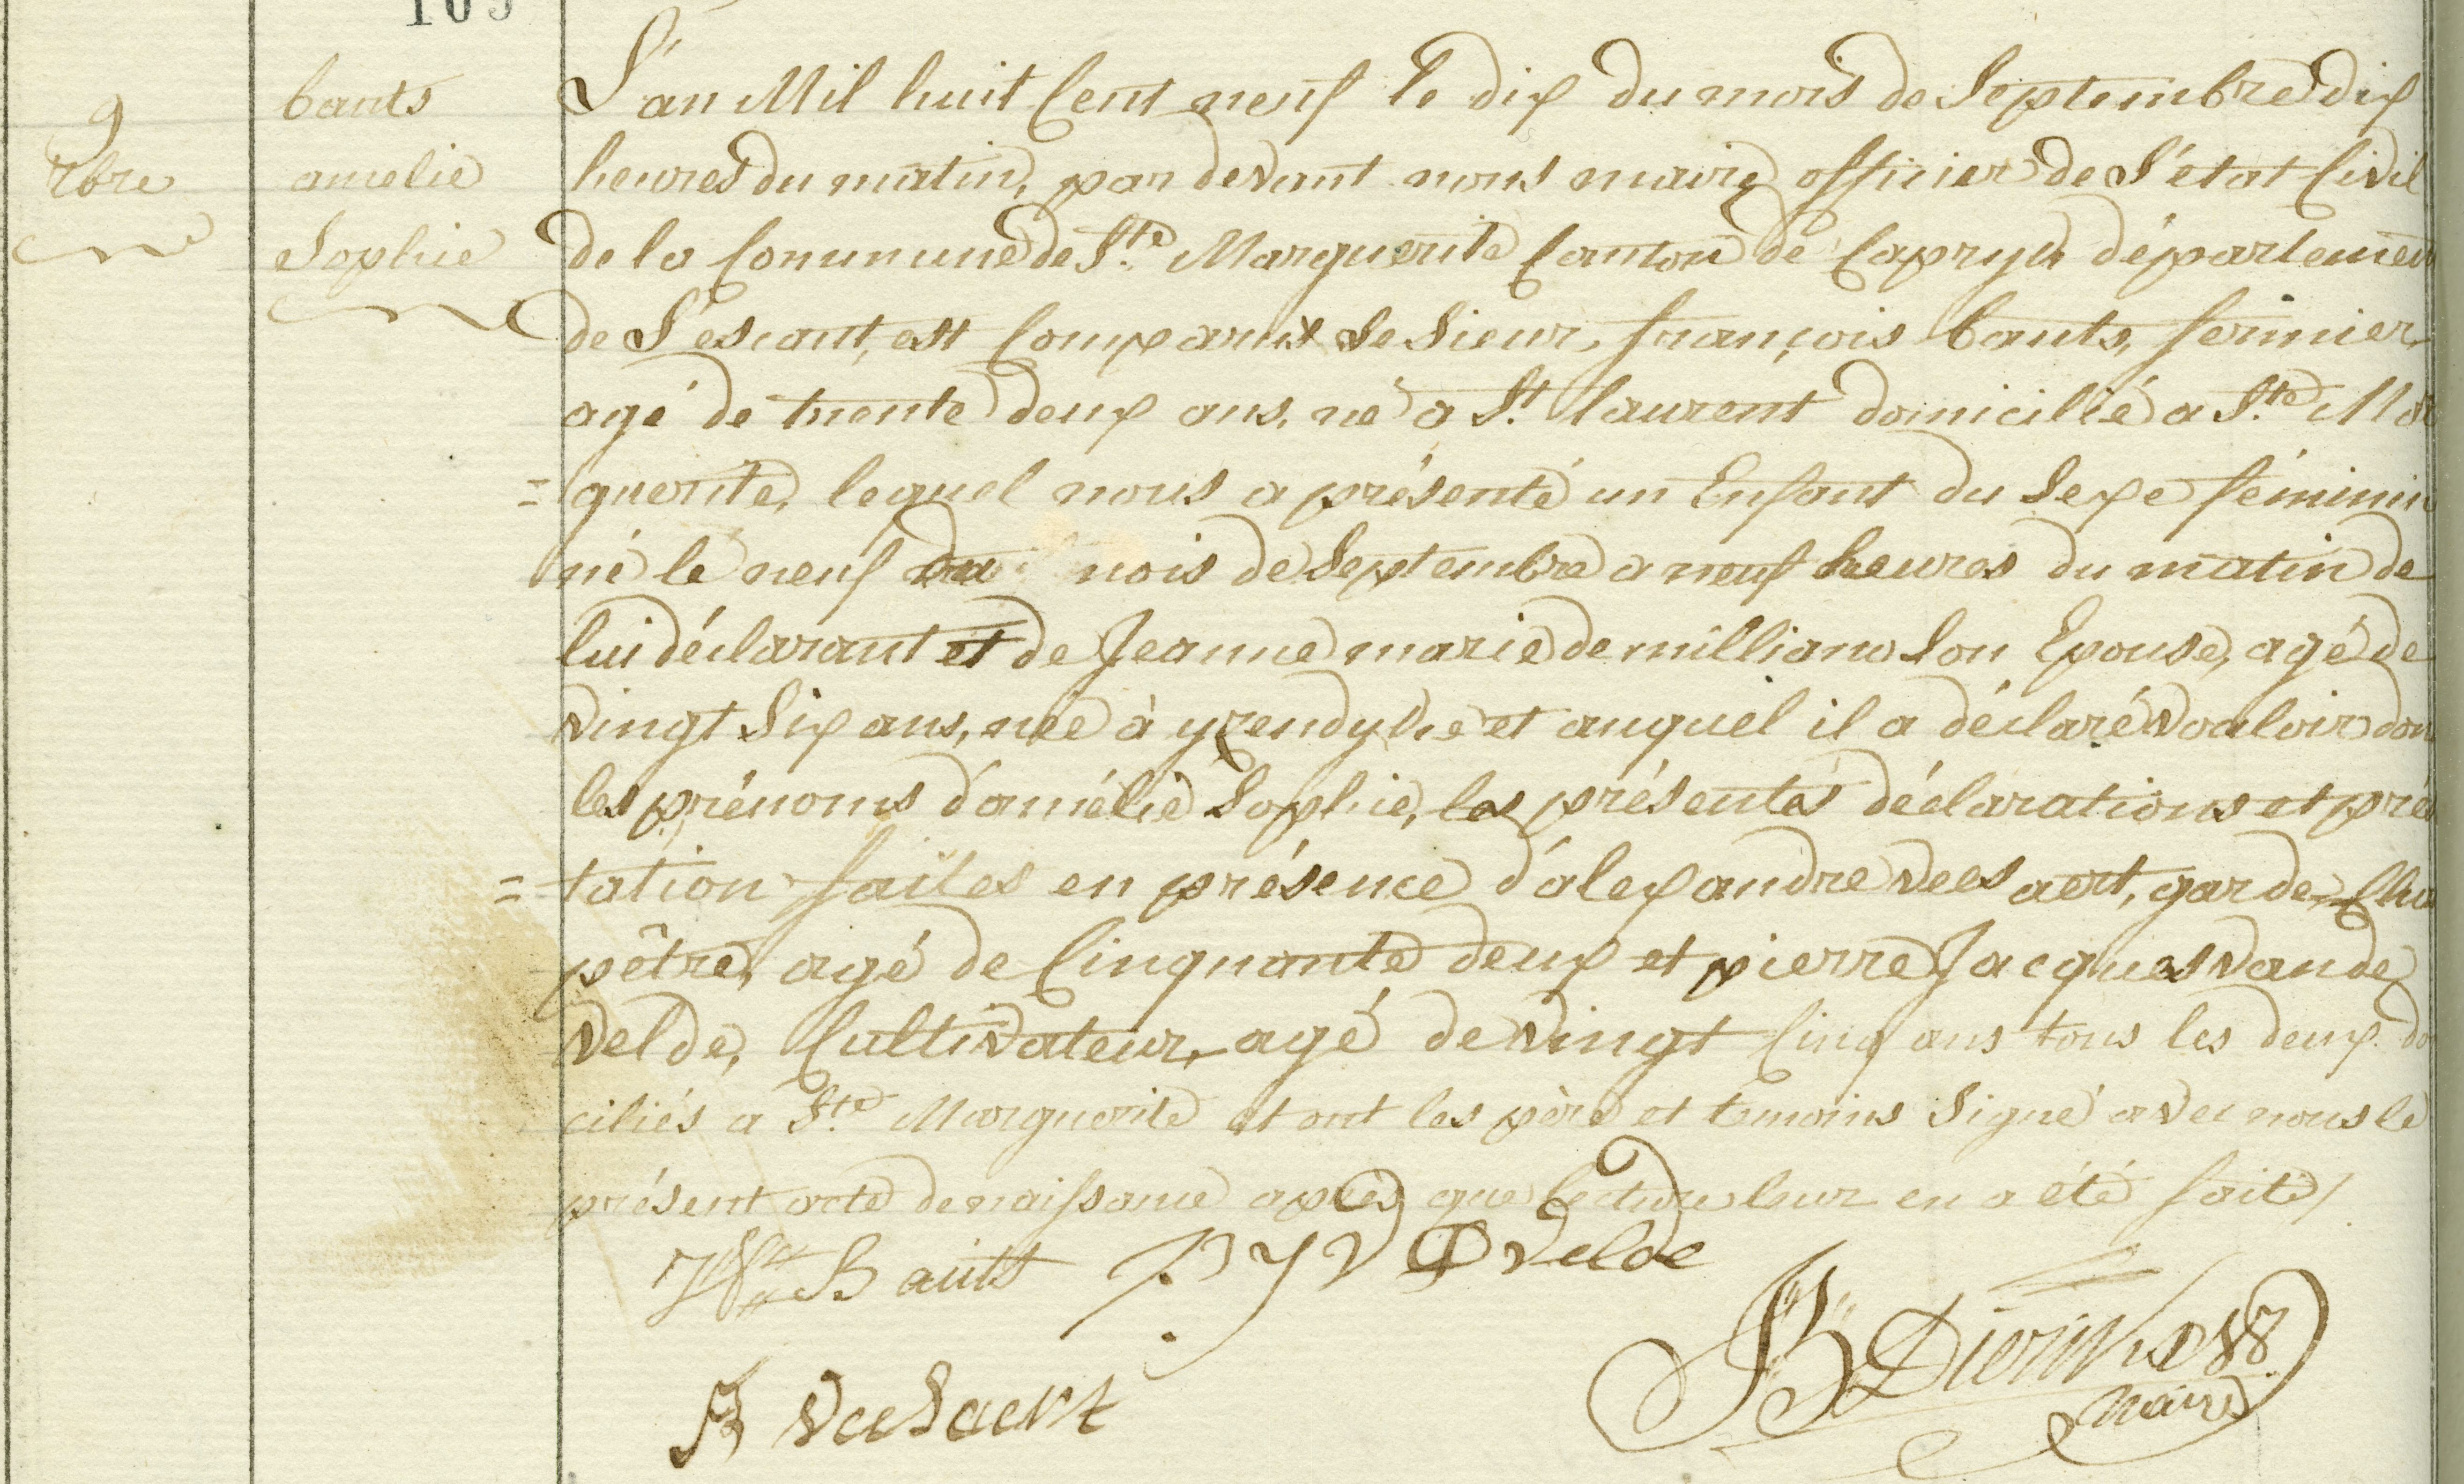 9
7bre
bauts
amelie
Sophie
L'an Mil huit Cent neuf le dix du mois de Septembre dix
heures du matin, par devant nous maire officier de L'état Civil
de la Commune de Ste Marguerite Canton de Capryk départemen
de L'escaut, est Comparu le Sieur, françois bauts, fermier,
agé de trente deux ans, né a St. laurent domicilié a Ste Mar
= guerite, lequel nous a présenté un Enfant du Sexe féminin
né le neuf du mois de Septembre a neuf heures du matin de
lui déclarant et de Jeanne marie de milliano Son Epouse, agé de
vingt Six ans, née à yzendyke et auquel il a déclaré voaloir don
les prénoms d'amélie Sophie, les présentes déclarations et prés
= tation faites en présence d'alexandre veesaert, garde-Cha
pêtre, agé de Cinquante deux et pierre Jacques vande
velde, Cultivateur, agé de vingt Cinq ans tous les deux do
ciliés a Ste Marguerite et ont les père et temoins Signé avec nous le
présent acte de naissance après que lecture leur en a été faite/
Bauts P J V D Velde
Veesaert
maire